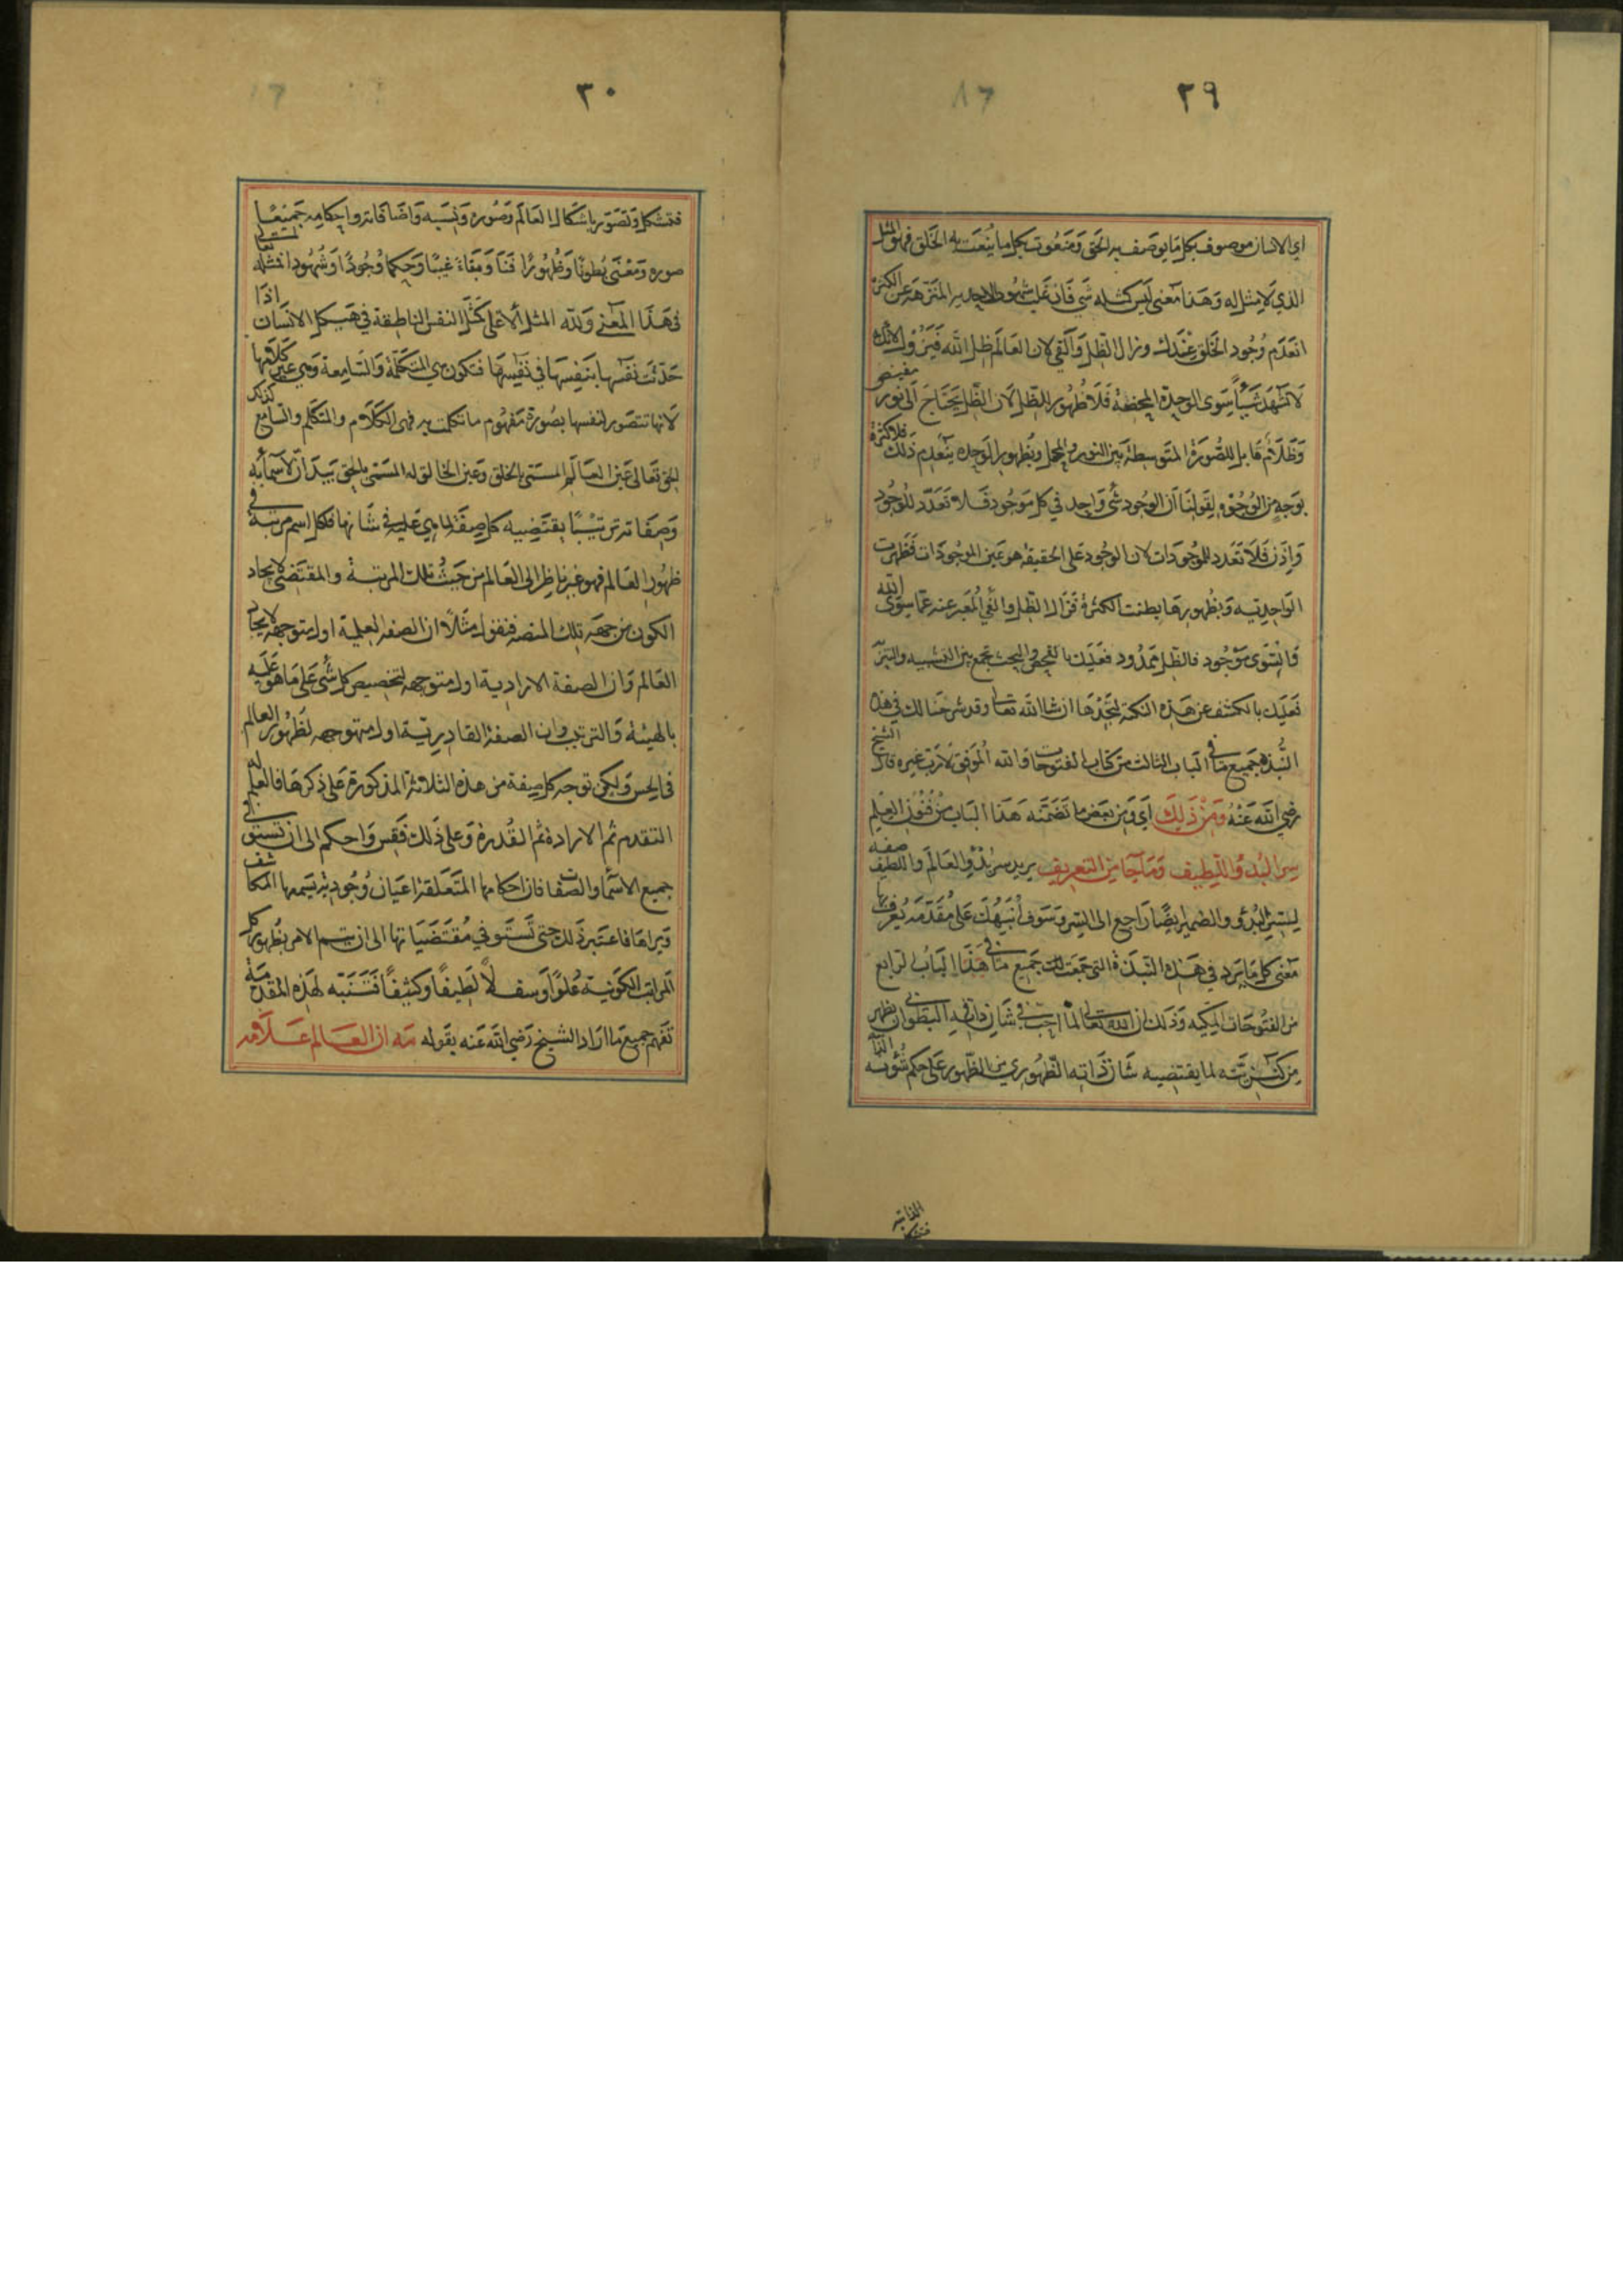 ٢٩
اي الانسان موصوف بكل ما يوصف به الحق ومنعوت بكل ما ينعت به الخلق فهو المثل
الذي لا مثل له وهذا معنى ليس كمثله شي فان غلب شهود الاحديه المنزهة عن الكثرة
انعدم وجود الخلق عندك وزال الظل والفي لان العالم ظل الله فيزول لانك
لا تشهد شيأ سوى الوحدة المحضة فلا ظهور للظل لان الظل يحتاج الى نور مفيض
وظلام قابل للصورة المتوسطة بين النور والمحل وبظهور الوحده ينعدم ذلك فلا كثرة
بوجه من الوجوه لقولنا ان الوجود شئ واحد في كل موجود فلا تعدد للوجود
واذن فلا تعدد للموجودات لان الوجود على الحقيقة هو عين الموجودات فظهرت
الواحدية وبظهورها بطنت الكثرة فزال الظل والفي المعبر عنه عما سوى الله
فالظل ممدود فعليك بالفحص والبحث تجمع بين التشبيه والتنزيه
فعليك بالكشف عن هذه النكته تجدها ان شا الله تعالى وقد شرحنا لك في هذه
النبذه جميع ما في الباب الثالث من كتاب الفتوحات والله الموفق لا رب غيره قال الشيخ
رضي الله عنه ومن ذلك اي ومن بعض ما تضمنه هذا الباب من فنون العلم
سر البدؤ اللطيف وما جا من التعريف يريد سر بدؤ العالم واللطيف صفه
لسر البدؤ والضمير ايضا راجع الى السر وسوف انبهك على مقدمه يعرف بها
معنى كل ما يرد في هذه النبذة التي جمعت لك جميع ما في هذا الباب الرابع
من الفتوحات المكيه وذلك ان الله تعالى لما احب في شان ذاته البطوني ان يظهر
من كنزيته لما يقتضيه شان ذاته الظهوري من الظهور على حكم شؤنه الذاتيه
الذاتيه
فتشكل
٣٠
فتشكل وتصور باشكال العالم وصوره ونسبه واضافاته واحكامه جميعها
صوره ومعنى بطونا وظهورا فنا وبقاء غيبا وحكما وجودا وشهودا
في هذا المعنى ولله المثل الاعلى كمثل النفس الناطقة في هيكل الانسان اذا
حدثت نفسها بنفسها في نفسها فتكون هي المتكلمة والسامعة وهي عين كلامها
لانها تتصور لنفسها بصورة مفهوم ما تكلمت به فهي الكلام والمتكلم والسامع كذلك
الحق تعالى عين العالم المسمى بالخلق وعين الخالق له المسمى بالحق بيد ان لاسمائه
وصفاته ترتيبا يقتضيه كل صفة لما هي عليه في شانها فلكل اسم مرتبة في
ظهور العالم فهو غير ناظر الى العالم من حيث تلك المرتبة والمقتضى لايجاد
الكون من جهه تلك المنصه فنقول مثلا ان الصفه العلمية اول متوجهه لايجاد
العالم وان الصفة الارادية اول متوجهه لتخصيص كل شئ على ما هو عليه
بالهيئة والترتيب وان الصفة القادرية اول متوجهه لظهور العالم
في الحس ولكن توجه كل صفة من هذه الثلاثة المذكورة على ذكرها فالعلم له
التقدم ثم الارادة ثم القدرة وعلى ذلك فقس واحكم الى ان تستوفى
جميع الاسما والصفات فان احكامها المتعلقة اعيان وجوديه يسمعها المكاشف
ويراها فاعتبر ذلك حتى تستوفي مقتضياتها الى ان يتم الامر بظهور كل
المراتب الكونية علوا وسفلا لطيفا وكثيفا فتنبه لهذه المقدمة
تفهم جميع ما اراد الشيخ رضي الله عنه بقوله مه ان العالم علامه